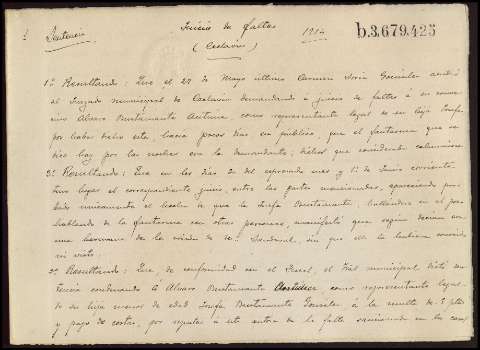 Sentencia Juicio de faltas 1914 b.3.679.425
(Ceclavin)
1º Resultando: Que el 27 de Mayo último Carmen Soria González acudió
al Juzgado municipal de Ceclavin demandando á juicio de faltas á su convecino
Alvaro Bustamante Antúnez, como representante legal de su hija Josefa,
por haber dicho esta, hacia pocos dias en público, que el fantasma que se
dice hay por las noches era la demandante; dichos que considerada calumniosos
2º Resultando: Que en los dias 30 del expresado mes y 1º de Junio corriente
tuvo lugar el correspondiente juicio, entre las partes mencionadas, apareciendo
unicamente el hecho de que la Josefa Bustamante, hallandose en el
hablando de la fantasma con otras personas, manifestó que según decian era
una hermana de la viuda de Sandoval, sin que ella la hubiera conocido
ni visto;
3º Resultando: Que, de conformidad con el Fiscal, el Tral municipal dictó
sentencia condenando á Alvaro Bustamante como representante legal
de su hija menor de edad Josefa Bustamante González á la multa de 5 ptas
y pago de costas, por reputar á esta autora de la falta sancionada en los